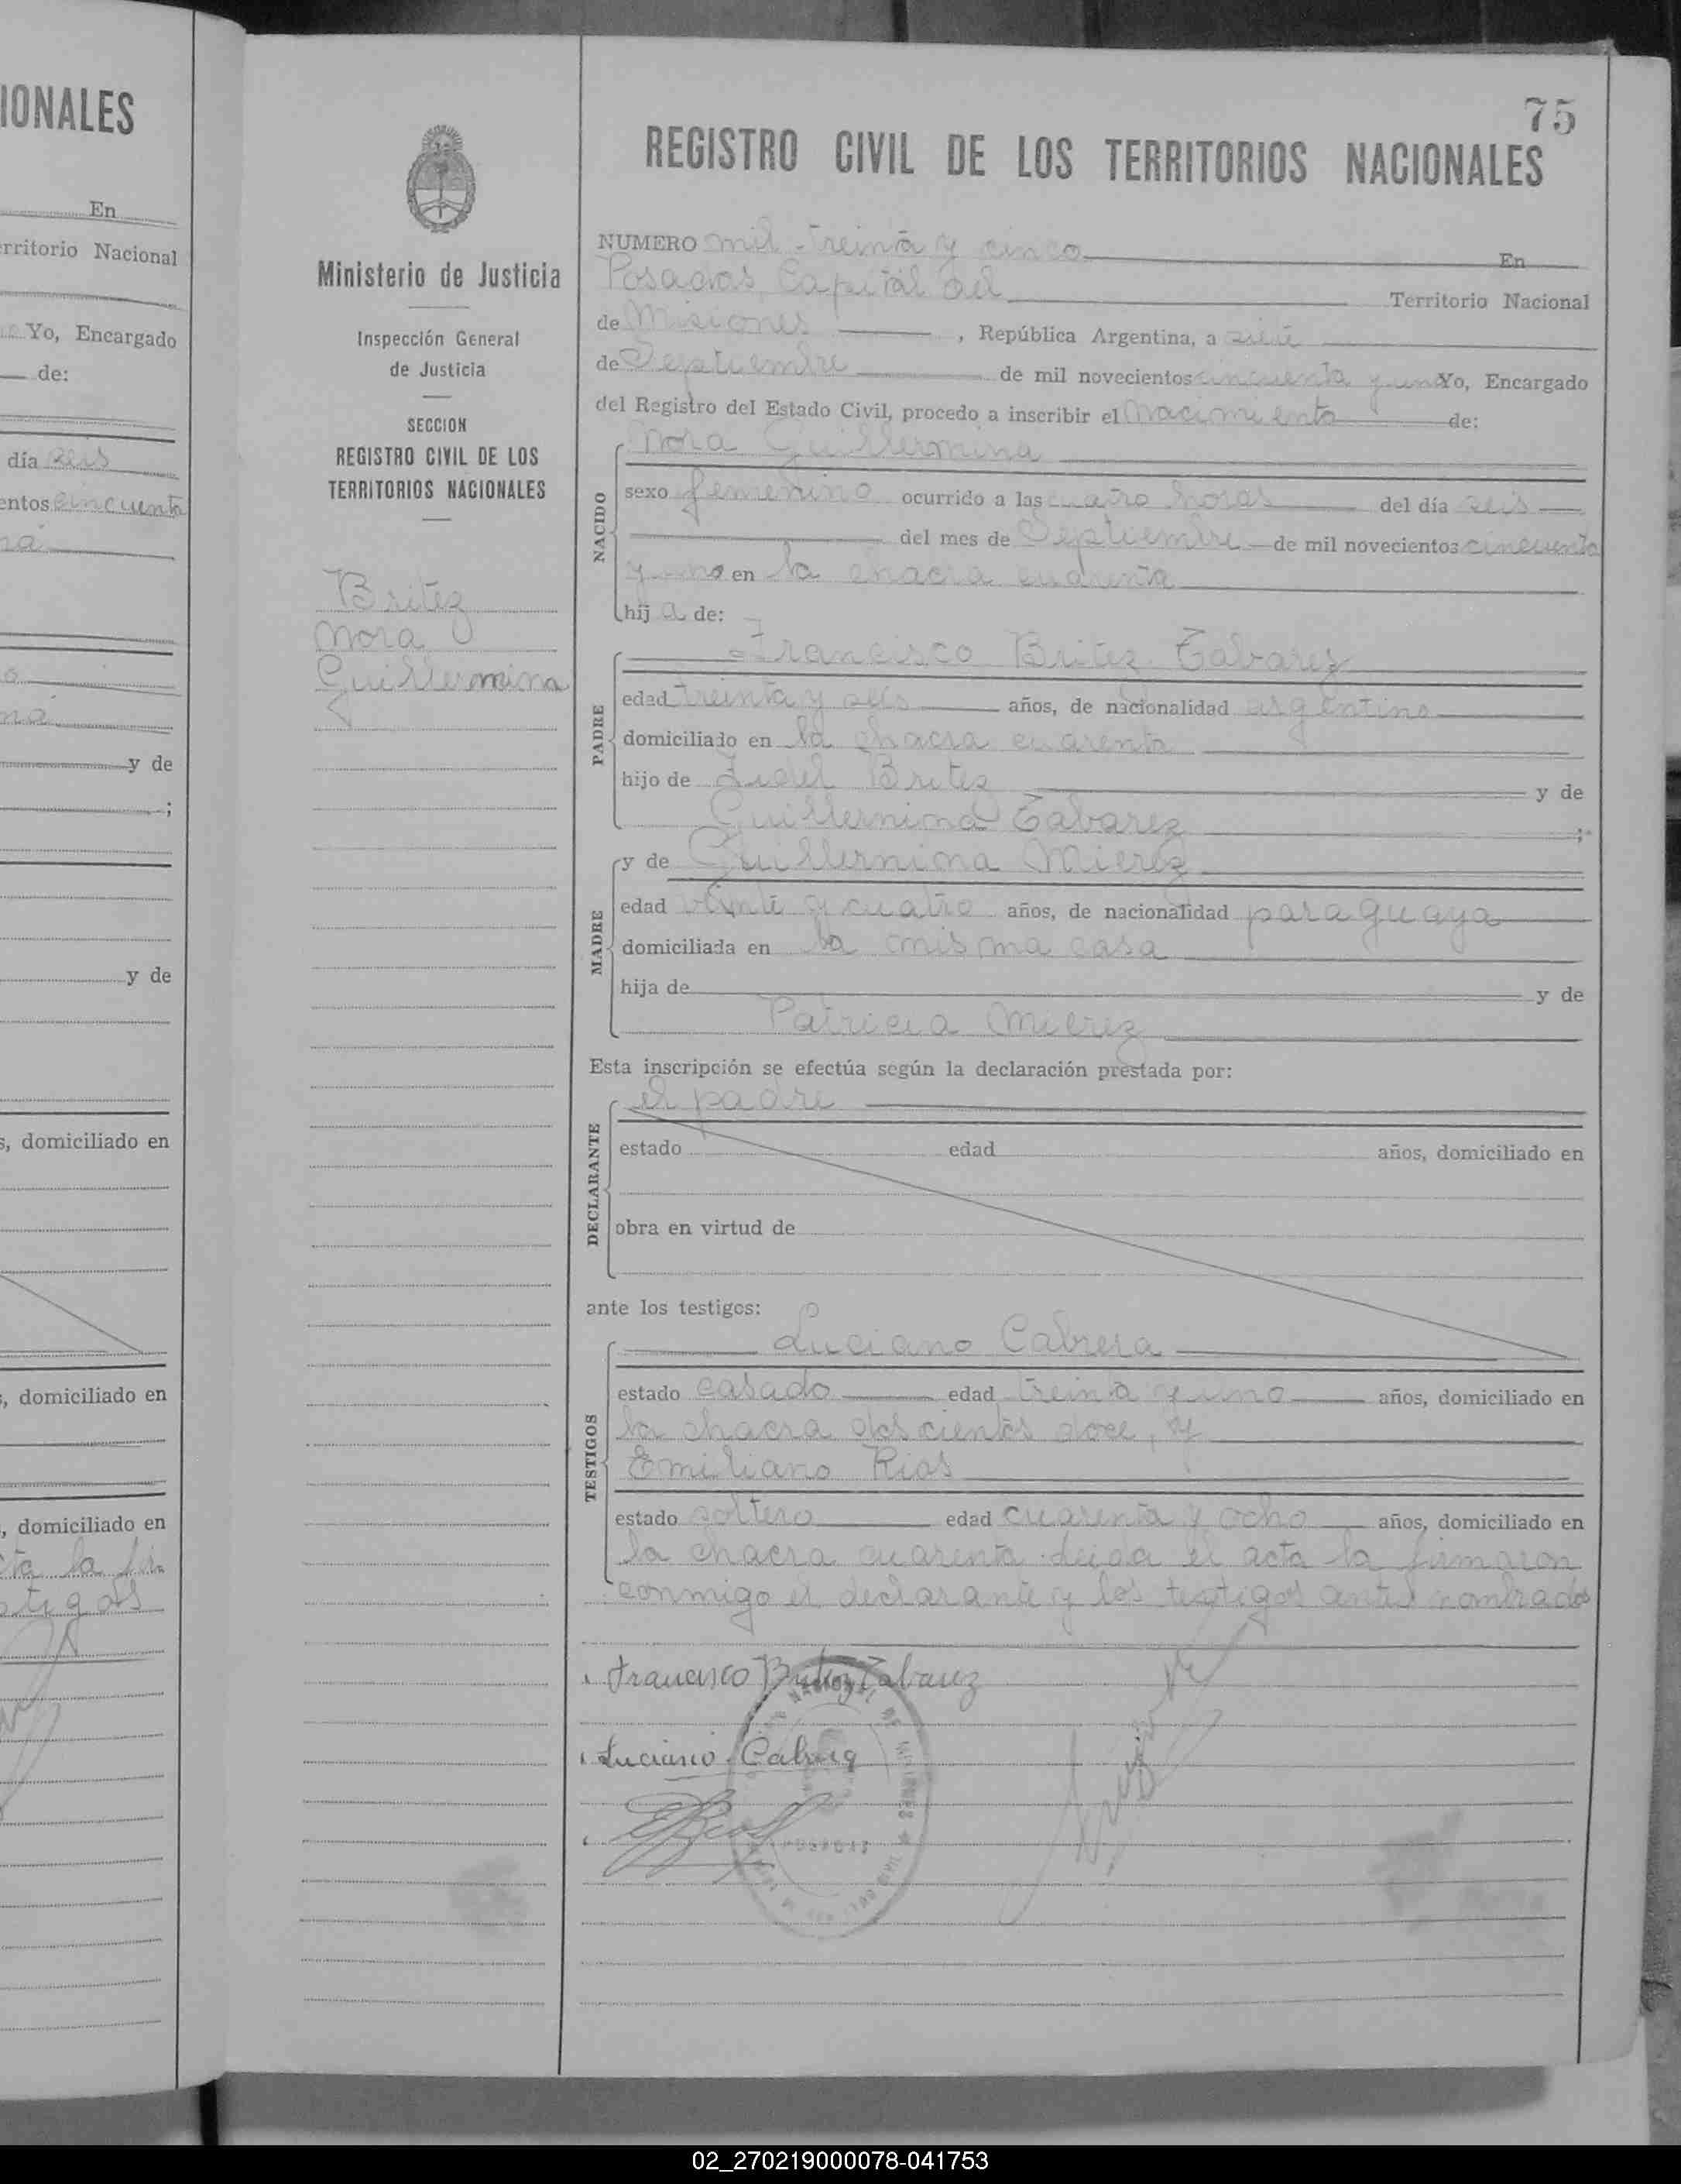 IONALES
En
erritorio Nacional
Yo, Encargado
de:
día seis
entos cincuenta
y de
;
y de
s, domiciliado en
s, domiciliado en
, domiciliado en
ta la fir
stigos
75
REGISTRO CIVIL DE LOS TERRITORIOS NACIONALES
Ministerio de Justicia
Inspección General
de Justicia
SECCION
REGISTRO CIVIL DE LOS
TERRITORIOS NACIONALES
Britez
Nora
Guillermina
NUMERO mil treinta y cinco En
Posadas Capital del Territorio Nacional
de Misiones, República Argentina, a siete
de Septiembre de mil novecientos cincuenta y uno Yo, Encargado
del Registro del Estado Civil, procedo a inscribir el Nacimiento de:
NACIDO
Nora Guillermina
sexo femenino ocurrido a las cuatro horas del día seis
del mes de Septiembre de mil novecientos cincuenta
y uno en la chacra cuarenta
hij a de:
PADRE
Francisco Britez Tabarez
edad treinta y seis años, de nacionalidad argentino
domiciliado en la chacra cuarenta
hijo de Fidel Britez y de
Guillermina Tabarez ;
MADRE
y de Guillermina Mierez
edad veinte y cuatro años, de nacionalidad paraguaya
domiciliada en la misma casa
hija de y de
Patricia Mierez
Esta inscripción se efectúa según la declaración prestada por:
DECLARANTE
el padre
estado edad años, domiciliado en
obra en virtud de
ante los testigos:
TESTIGOS
Luciano Cabrera
estado casado edad treinta y uno años, domiciliado en
la chacra doscientos doce, y
Emiliano Rios
estado soltero edad cuarenta y ocho años, domiciliado en
la chacra cuarenta leida el acta la firmaron
conmigo el declarante y los testigos antes nombrados
Francisco Britez Tabarez
Luciano Cabrera
ERios
02_270219000078-041753